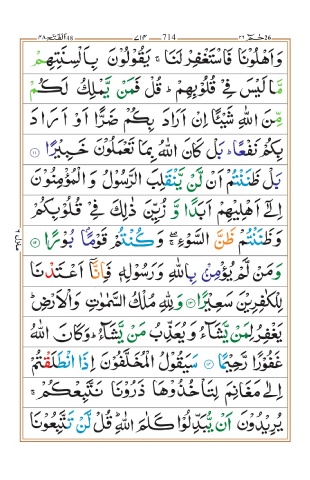 حٰمٓ ٢٦ ٧١٤ 714 الفتح ٤٨
وَاَهْلُوْنَا فَاسْتَغْفِرْ لَنَا ۚ يَقُوْلُوْنَ بِاَلْسِنَتِهِمْ
مَّا لَيْسَ فِيْ قُلُوْبِهِمْ ؕ قُلْ فَمَنْ يَّمْلِكُ لَكُمْ
مِّنَ اللّٰهِ شَيْـًٔا اِنْ اَرَادَ بِكُمْ ضَرًّا اَوْ اَرَادَ
بِكُمْ نَفْعًا ؕ بَلْ كَانَ اللّٰهُ بِمَا تَعْمَلُوْنَ خَبِيْرًا ﴿۱۱﴾
بَلْ ظَنَنْتُمْ اَنْ لَّنْ يَّنْقَلِبَ الرَّسُوْلُ وَ الْمُؤْمِنُوْنَ
اِلٰۤى اَهْلِيْهِمْ اَبَدًا وَّ زُيِّنَ ذٰلِكَ فِيْ قُلُوْبِكُمْ
وَظَنَنْتُمْ ظَنَّ السَّوْءِ ۖۚ وَكُنْتُمْ قَوْمًۢا بُوْرًا ﴿۱۲﴾
وَمَنْ لَّمْ يُؤْمِنْۢ بِاللّٰهِ وَرَسُوْلِهٖ فَاِنَّاۤ اَعْتَدْنَا
لِلْكٰفِرِيْنَ سَعِيْرًا ﴿۱۳﴾ وَلِلّٰهِ مُلْكُ السَّمٰوٰتِ وَالْاَرْضِ ؕ
يَغْفِرُ لِمَنْ يَّشَآءُ وَيُعَذِّبُ مَنْ يَّشَآءُ ؕ وَكَانَ اللّٰهُ
غَفُوْرًا رَّحِيْمًا ﴿۱۴﴾ سَيَقُوْلُ الْمُخَلَّفُوْنَ اِذَا انْطَلَقْتُمْ
اِلٰى مَغَانِمَ لِتَاْخُذُوْهَا ذَرُوْنَا نَتَّبِعْكُمْ ۚ
يُرِيْدُوْنَ اَنْ يُّبَدِّلُوْا كَلٰمَ اللّٰهِ ؕ قُلْ لَّنْ تَتَّبِعُوْنَا